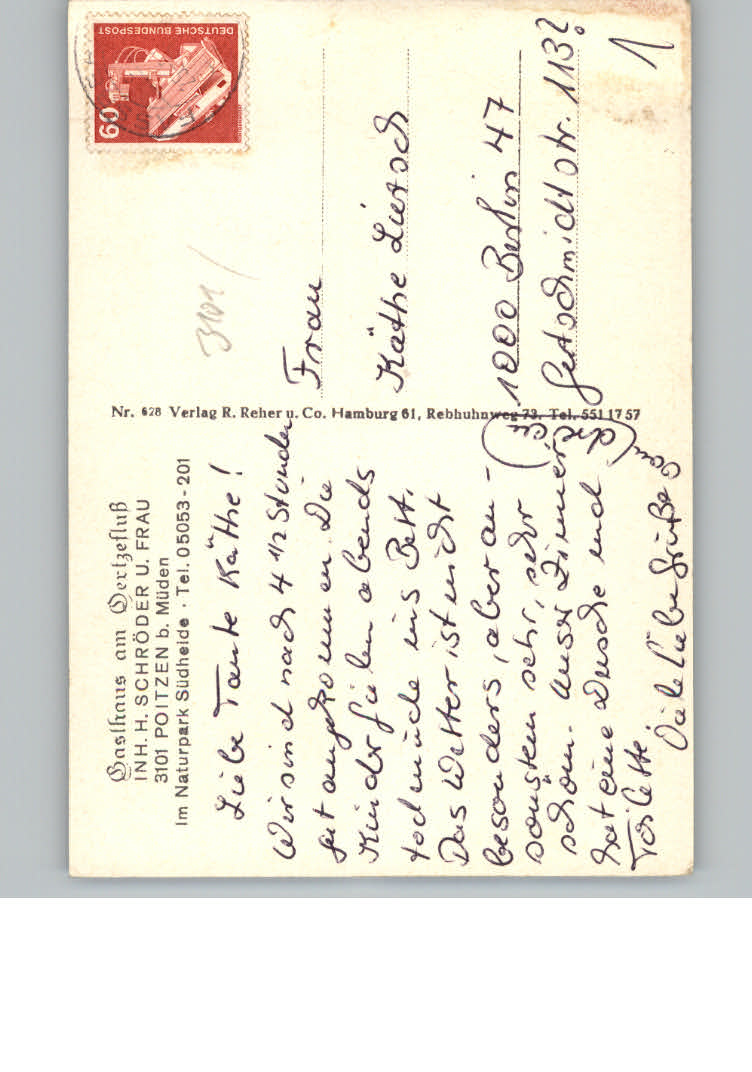 Gasthaus am Oertzefluß
INH. H. SCHRÖDER U. FRAU
3101 POITZEN b. Müden
Im Naturpark Südheide · Tel. 05053-201
Liebe Tante Käthe!
Wir sind nach 4 1/2 Stunden
gut angekommen. Die
Kinder fielen abends
todmüde ins Bett.
Das Wetter ist nicht
besonders, aber an-
sonsten sehr, sehr
schön. Unser Zimmer
hat eine Dusche und
Toilette.
Viele liebe Grüße
Nr. 628 Verlag R. Reher u. Co. Hamburg 61, Rebhuhnweg 73. Tel. 551 17 57
DEUTSCHE BUNDESPOST
60
3101
Frau
Käthe Liersch
1000 Berlin 47
Gertschmidtstr. 113?
1